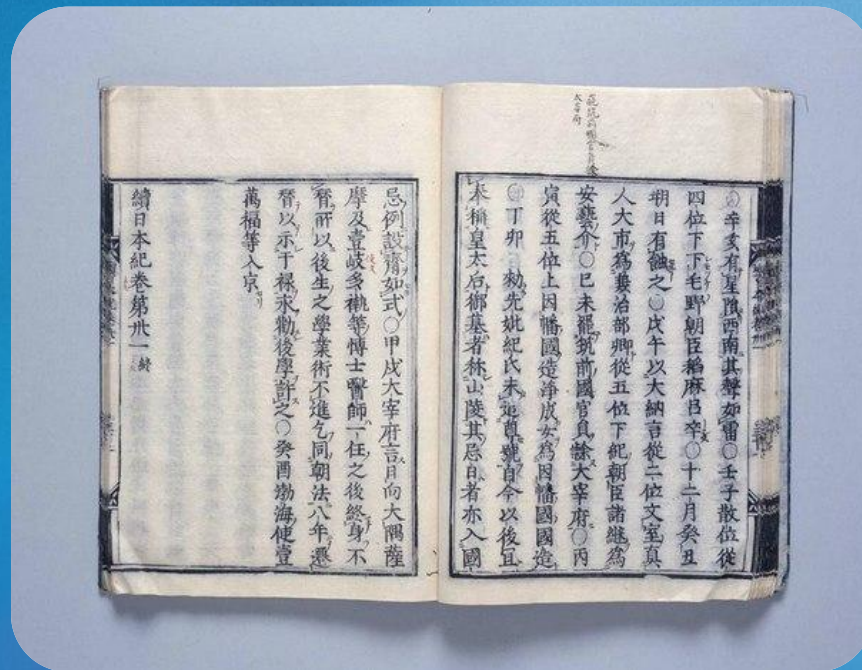 辛亥有星隕西南其聲如雷○壬子散位從
四位下下毛野朝臣稻麻呂卒○十二月癸丑
朔日有蝕之○戊午以大納言從二位文室眞
人大市爲兼治部卿從五位下紀朝臣諸繼爲
安藝介○己未罷筑前國官員隸大宰府○丙
寅從五位上因幡國造淨成女爲因幡國國造
○丁卯勅先妣紀氏未追尊號自今以後宜
奉稱皇太后御墓者稱山陵其忌日者亦入國
忌例設齋如式○甲戌大宰府言日向大隅薩
摩及壹岐多褹等博士醫師一任之後終身不
替所以後生之學業術不進乞同朝法八年遷
替以示干祿永勸後學許之○癸酉渤海使壹
萬福等入京
續日本紀卷第卅一 終